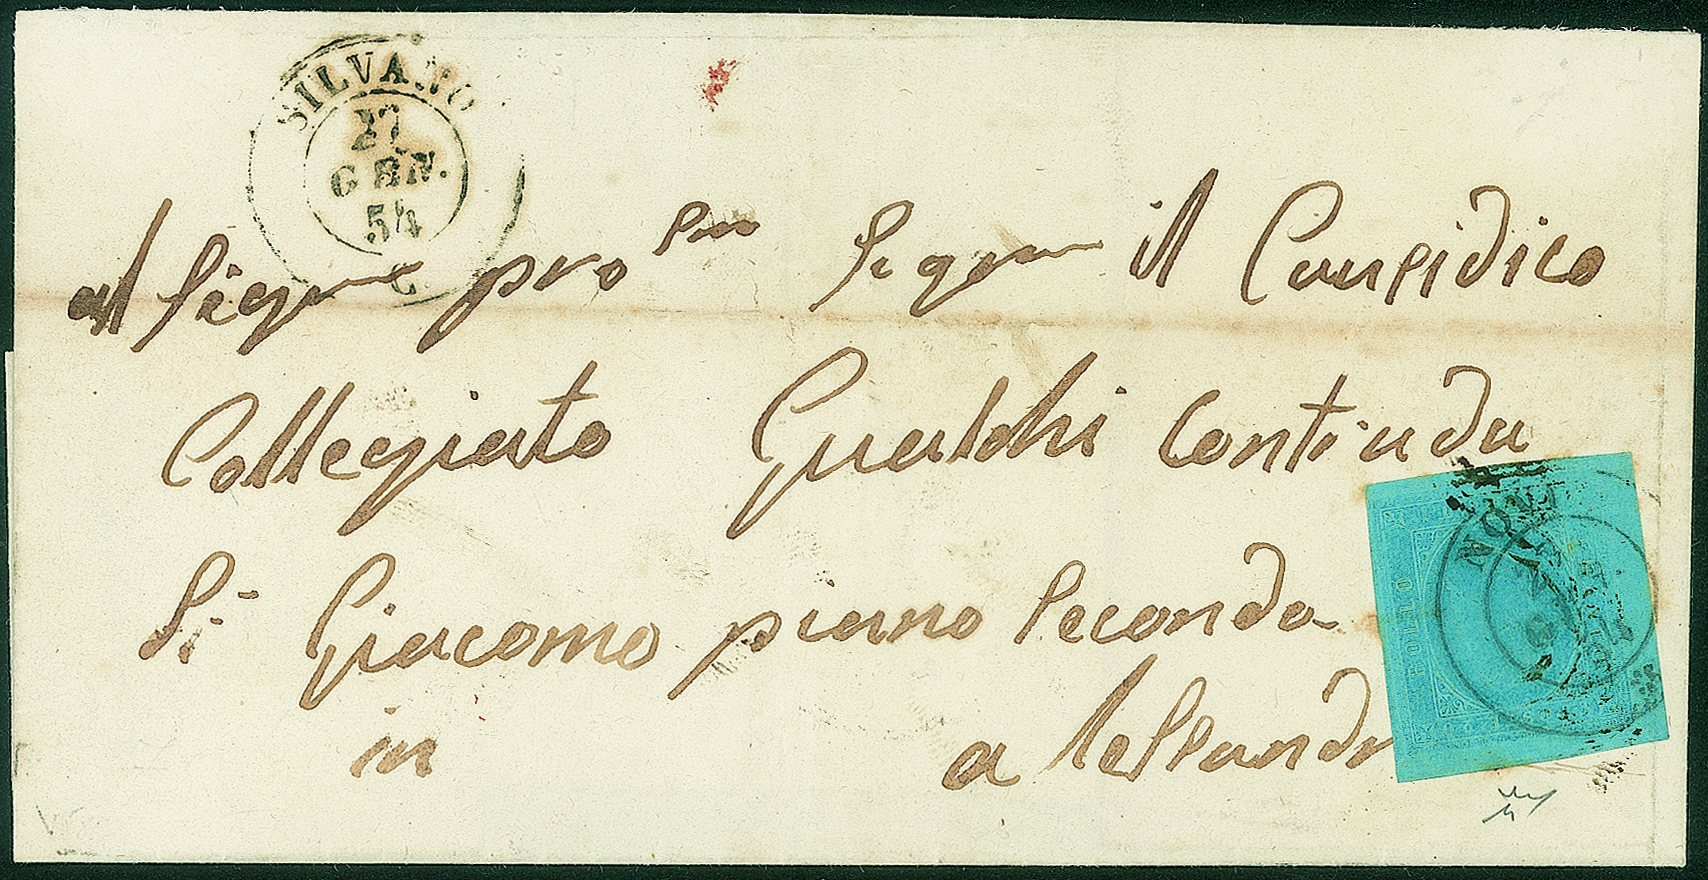 SILVANO
27
GEN.
54
al Sigre pro Sig il Causidico
Collegiato Gualchi Contrada
Sn Giacomo piano Secondo
in alessandr
NOVI
BOLLO